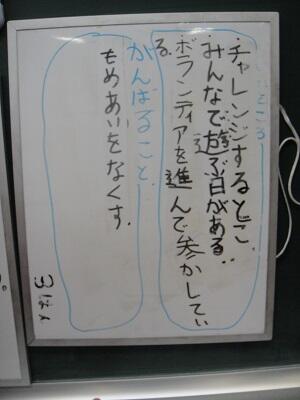 いいところ
・チャレンジするとこ。
・みんなで遊ぶ日がある。
・ボランティアを進んで参かしてい
る。
がんばること
もめあいをなくす。
3はん